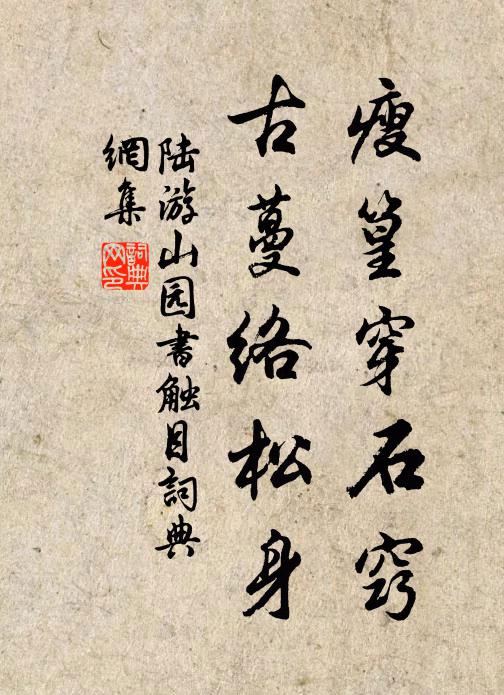 瘦篁穿石窍
古蔓络松身
陆游山园书触目詞典
網集
詞典网印